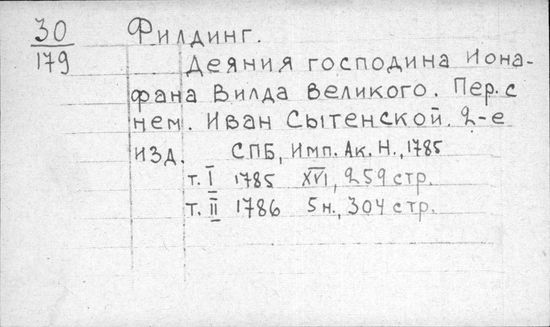 30 Филдинг.
179 Деяния господина Иона-
фана Вилда великого. Пер. с
нем. Иван Сытенской. 2-е
изд. СПБ, Имп. Ак. Н., 1785
т. I 1785 XVI, 259 стр.
т. II 1786 5 н., 304 стр.